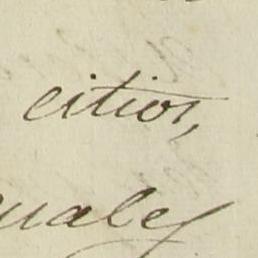 citios,
uales